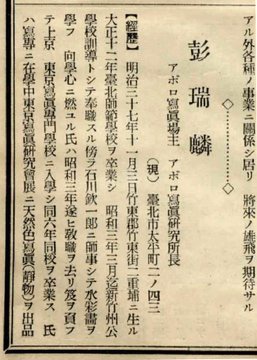 アル外各種ノ事業ニ關係シ居リ 將來ノ雄飛ヲ期待サル
彭瑞麟
アポロ寫眞場主 アポロ寫眞硏究所長
(現) 臺北市太平町二ノ四三
【經歷】 明治三十七年十一月三日竹東郡竹東街二重埔ニ生ル
大正十二年臺北師範學校ヲ卒業シ 昭和三年三月迄新竹州公
學校訓導トシテ奉職スル傍ラ石川欽一郞ニ師事シテ水彩畵ヲ
學フ 向學心ニ燃ユル氏ハ昭和三年遂ヒ敎職ヲ去リ笈ヲ負フ
テ上京 東京寫眞專門學校ニ入學シ同六年同校ヲ卒業ス 氏
ハ寫專ニ在學中東京寫眞硏究會展ニ天然色寫眞(靜物)ヲ出品